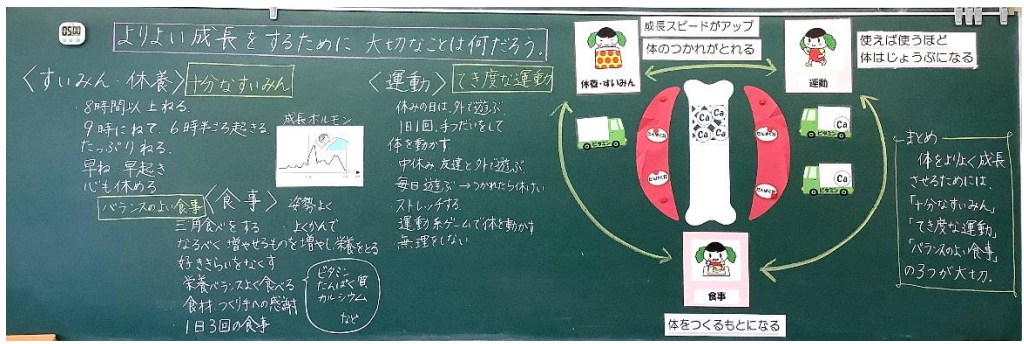 05:00
よりよい成長をするために 大切なことは何だろう.
〈すいみん 休養〉
十分なすいみん
・8時間以上ねる.
9時にねて、6時半ごろ起きる
たっぷりねる.
早ね 早起き
心も休める
成長ホルモン
バランスのよい食事
〈食事〉
姿勢よく
三角食べをする ・よくかんで
なるべく増やせるものを増やし栄養をとる
好ききらいをなくす
栄養バランスよく食べる
ビタミン
たんぱく質
カルシウム
など
食材、つくり手への感謝
1日3回の食事
〈運動〉
てき度な運動
休みの日は、外で遊ぶ
1日1回、手つだいをして
体を動かす
中休み 友達と外で遊ぶ
毎日遊ぶ→つかれたら休けい
ストレッチする.
運動系ゲームで体を動かす
無理をしない
成長スピードがアップ
体のつかれがとれる
休養・すいみん
運動
使えば使うほど
体はじょうぶになる
Ca
Ca
Ca
Ca
たんぱく質
たんぱく質
たんぱく質
たんぱく質
ビタミン
Ca
ビタミン
Ca
ビタミン
食事
体をつくるもとになる
まとめ
体をよりよく成長
させるためには、
「十分なすいみん」
「てき度な運動」
「バランスのよい食事」
の3つが大切.